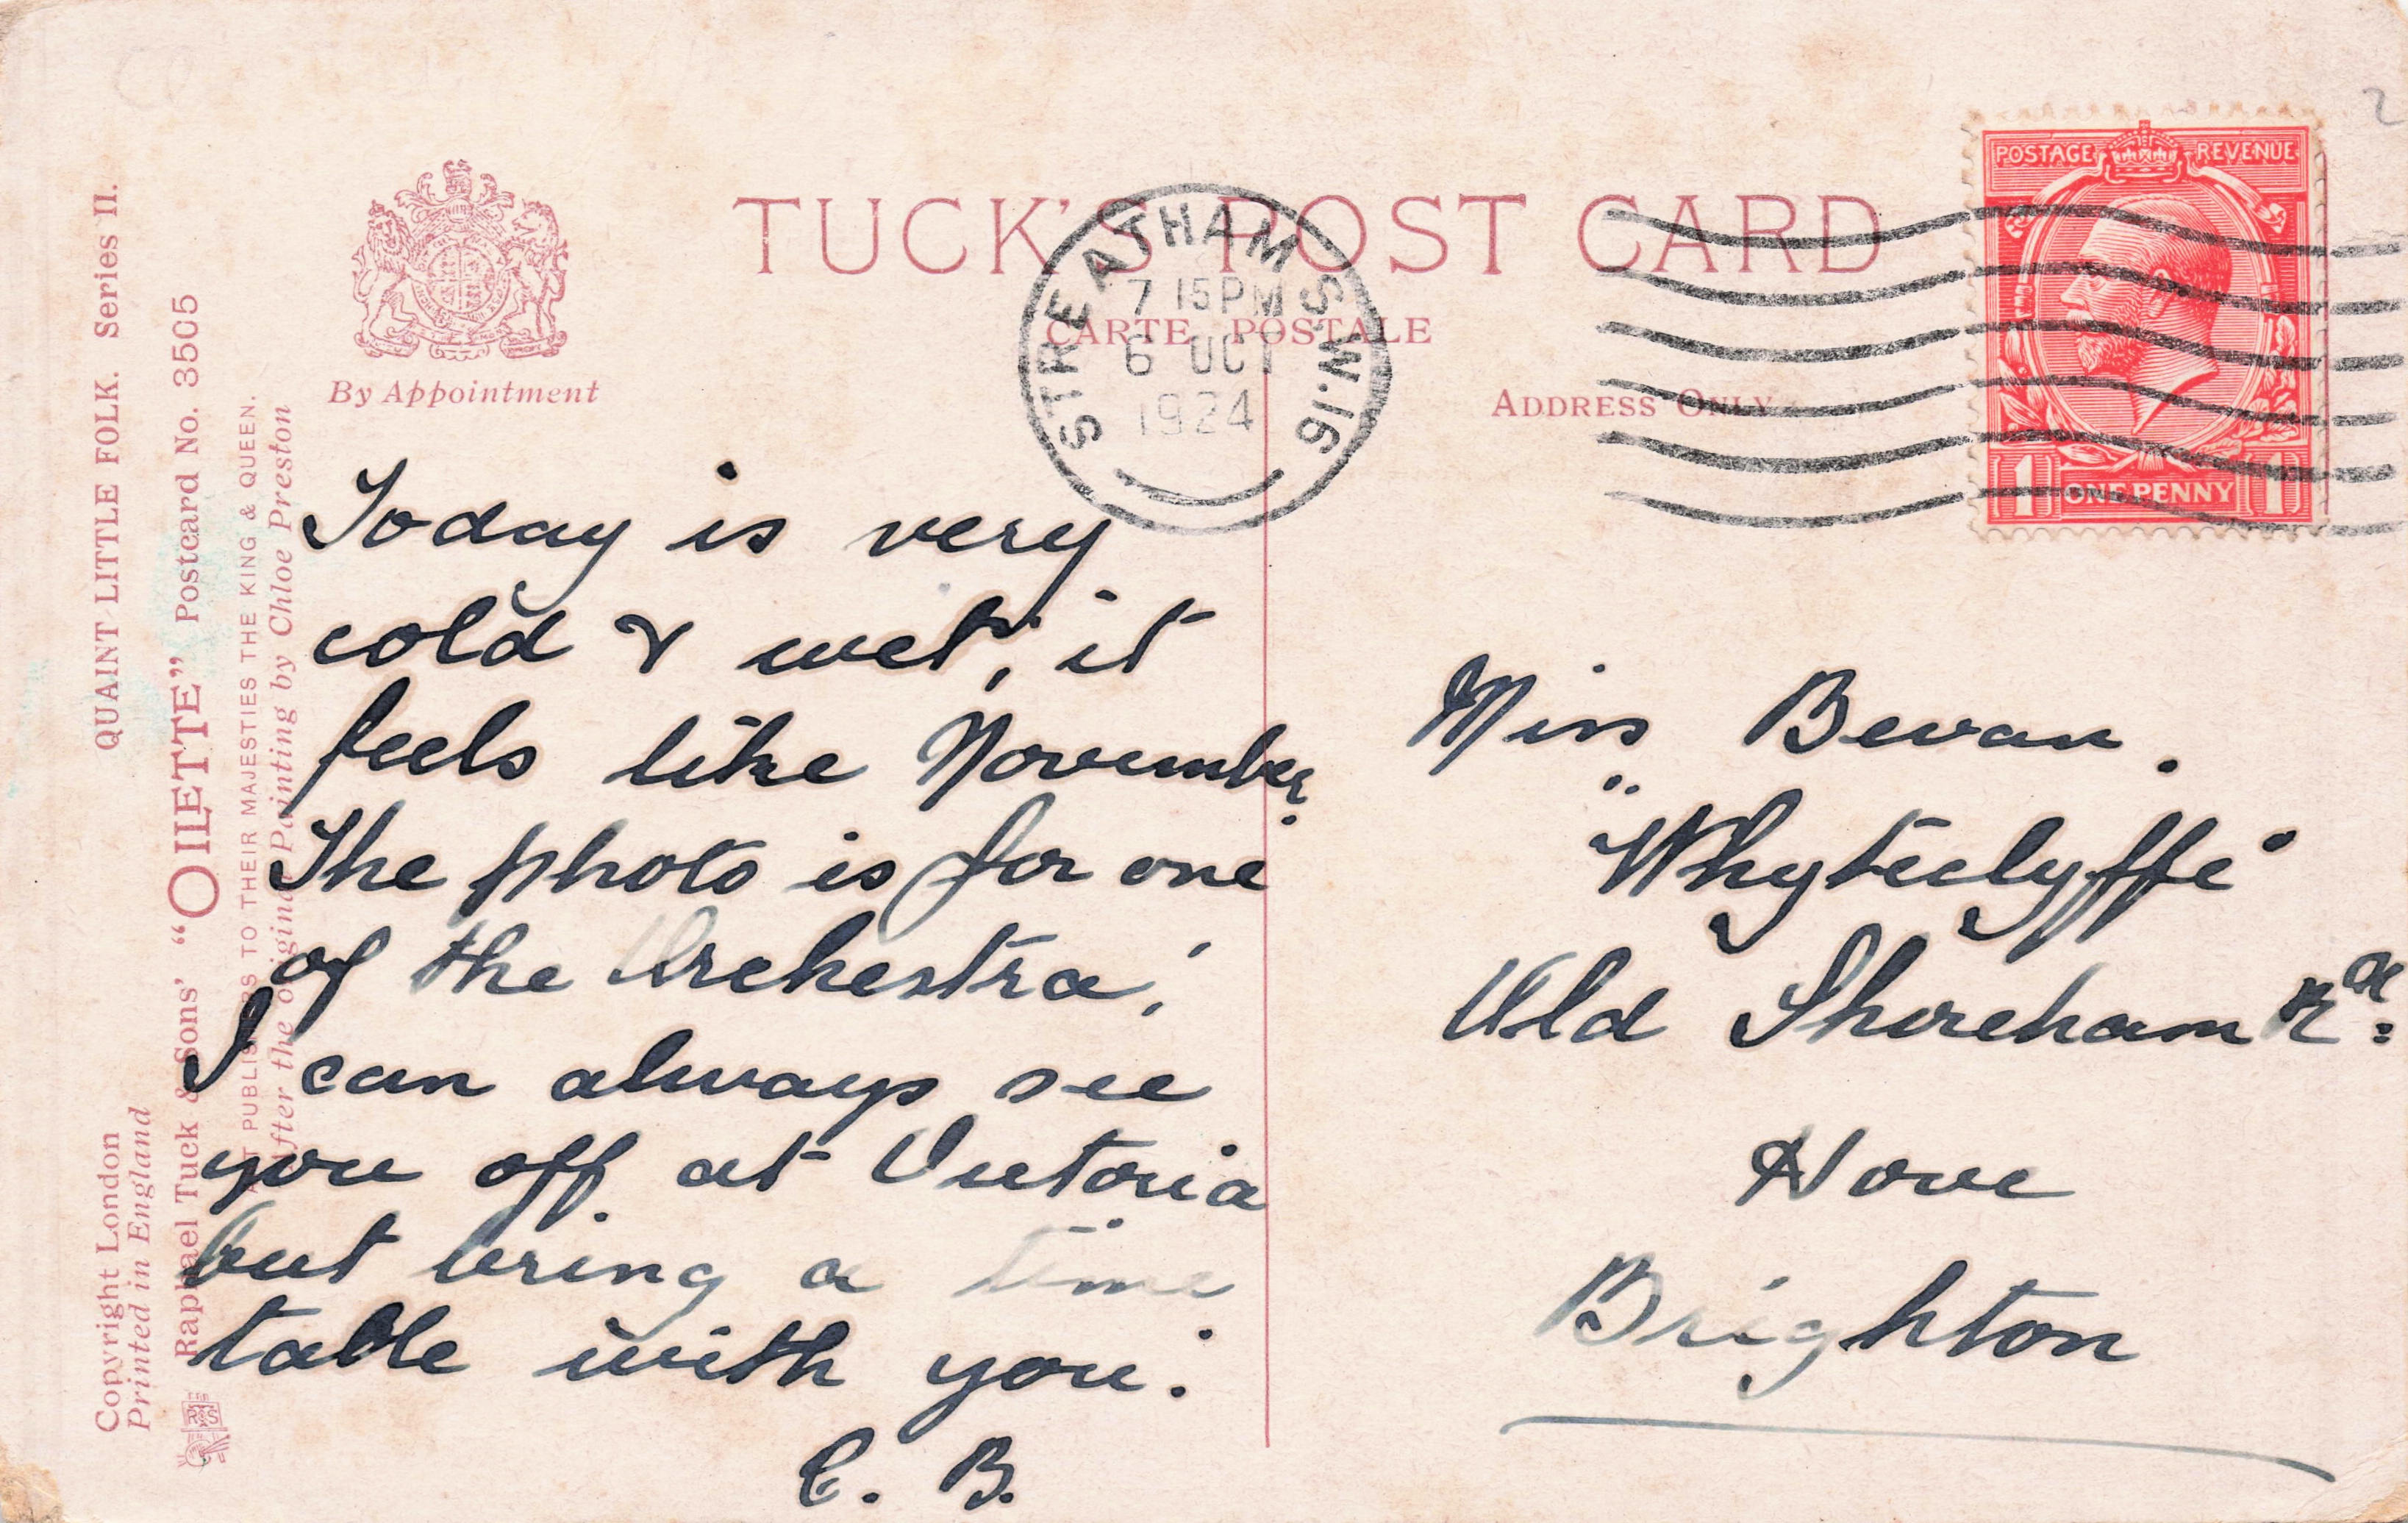 TUCK'S POST CARD
CARTE POSTALE
By Appointment
ADDRESS ONLY
STREATHAM S.W.16
7 15 PM
6 OCT
1924
POSTAGE REVENUE
1 ONE PENNY 1
2
QUAINT LITTLE FOLK. Series II.
"OILETTE" Postcard No. 3505
Raphael Tuck & Sons'
ART PUBLISHERS TO THEIR MAJESTIES THE KING & QUEEN.
After the original Painting by Chloe Preston
Copyright London
Printed in England
Today is very
cold & wet, it
feels like November.
The photo is for one
of the Orchestra,
I can always see
you off at Victoria
but bring a time
table with you.
C. B.
Miss Bevan.
"Whyteclyffe"
Old Shoreham Rd.
Hove
Brighton